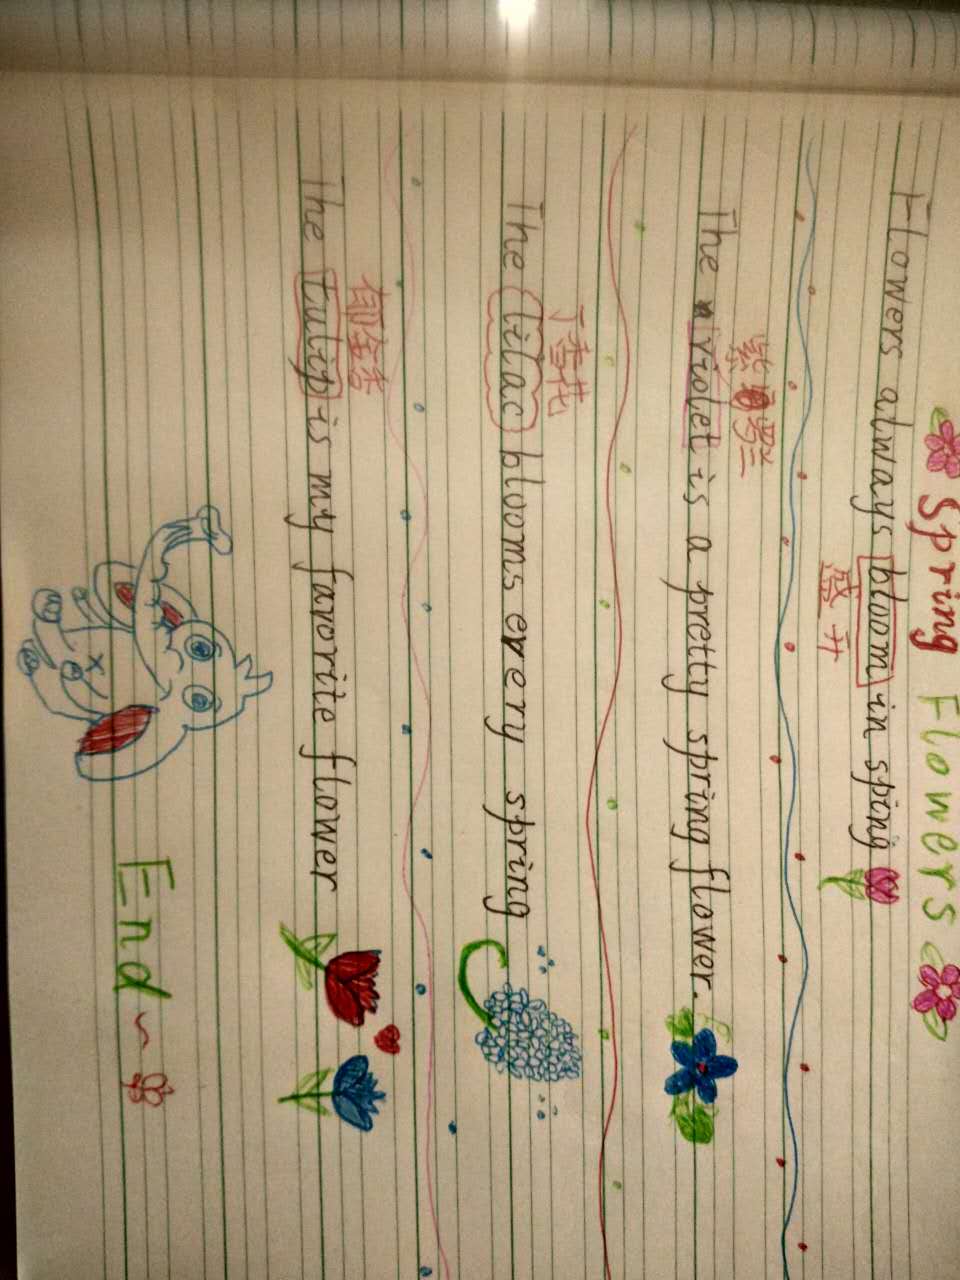 Spring Flowers
Flowers always bloom in sping
盛开
紫罗兰
The violet is a pretty spring flower.
丁香花
The lilac blooms every spring
郁金香
The tulip is my favorite flower
End~